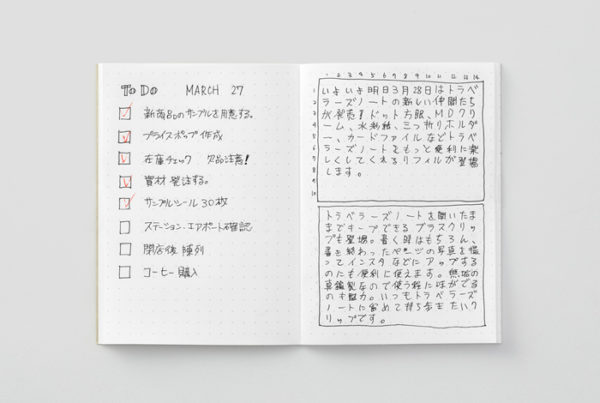 To Do MARCH 27
新商品のサンプルを用意する。
プライスポップ作成
在庫チェック 欠品注意!
資材発注する。
サンプルシール30枚
ステーション.エアポート確認
閉店後 陳列
コーヒー購入
1 2 3 4 5 6 7 8 9 10 11 12 13 14
1
2
3
4
5
6
7
8
9
10
いよいよ明日3月28日はトラベ
ラーズノートの新しい仲間たち
が発売!ドット方眼、MDクリ
ーム、水彩紙、三つ折りホルダ
ー、カードファイルなどトラベ
ラーズノートをもっと便利に楽
しくしてくれるリフィルが登場
します。
トラベラーズノートを開いたま
まキープできるブラスクリッ
プも登場。書く時はもちろん、
書き終わったページの写真を撮
ってインスタなどにアップする
のにも便利に使えます。無垢の
真鍮製なので使う程に味がでる
のも魅力。いつもトラベラーズ
ノートに留めて持ち歩きたいク
リップです。